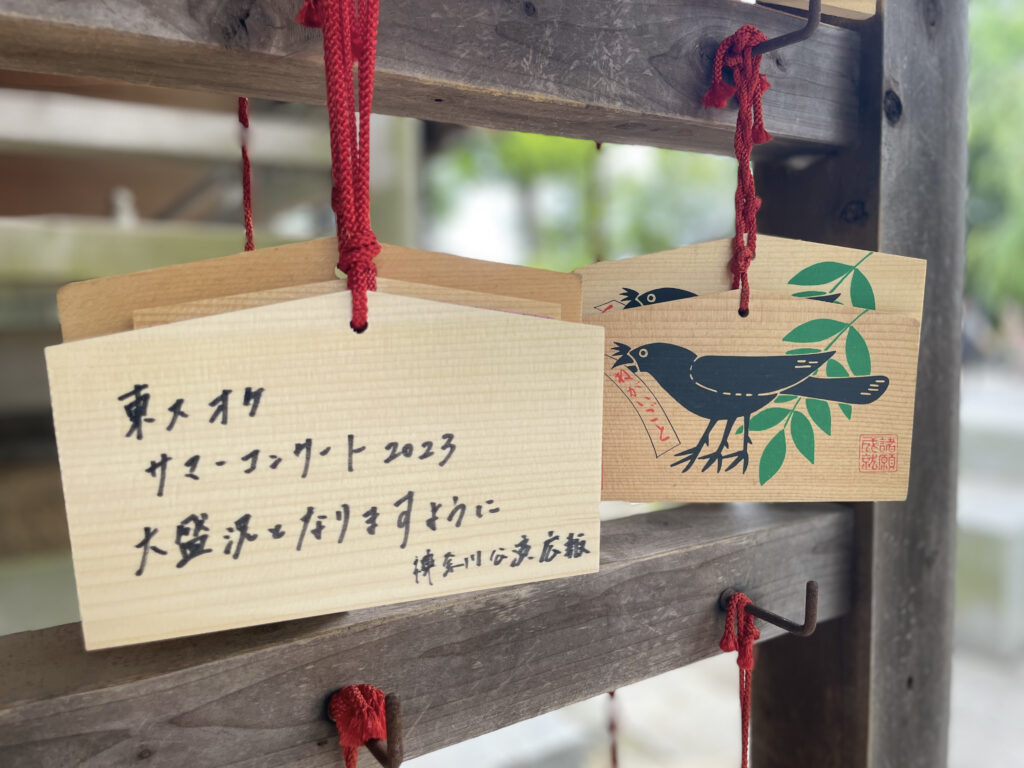 東大オケ
サマーコンサート2023
大盛況となりますように
神奈川公演広報
ねがいごと
諸願
成就